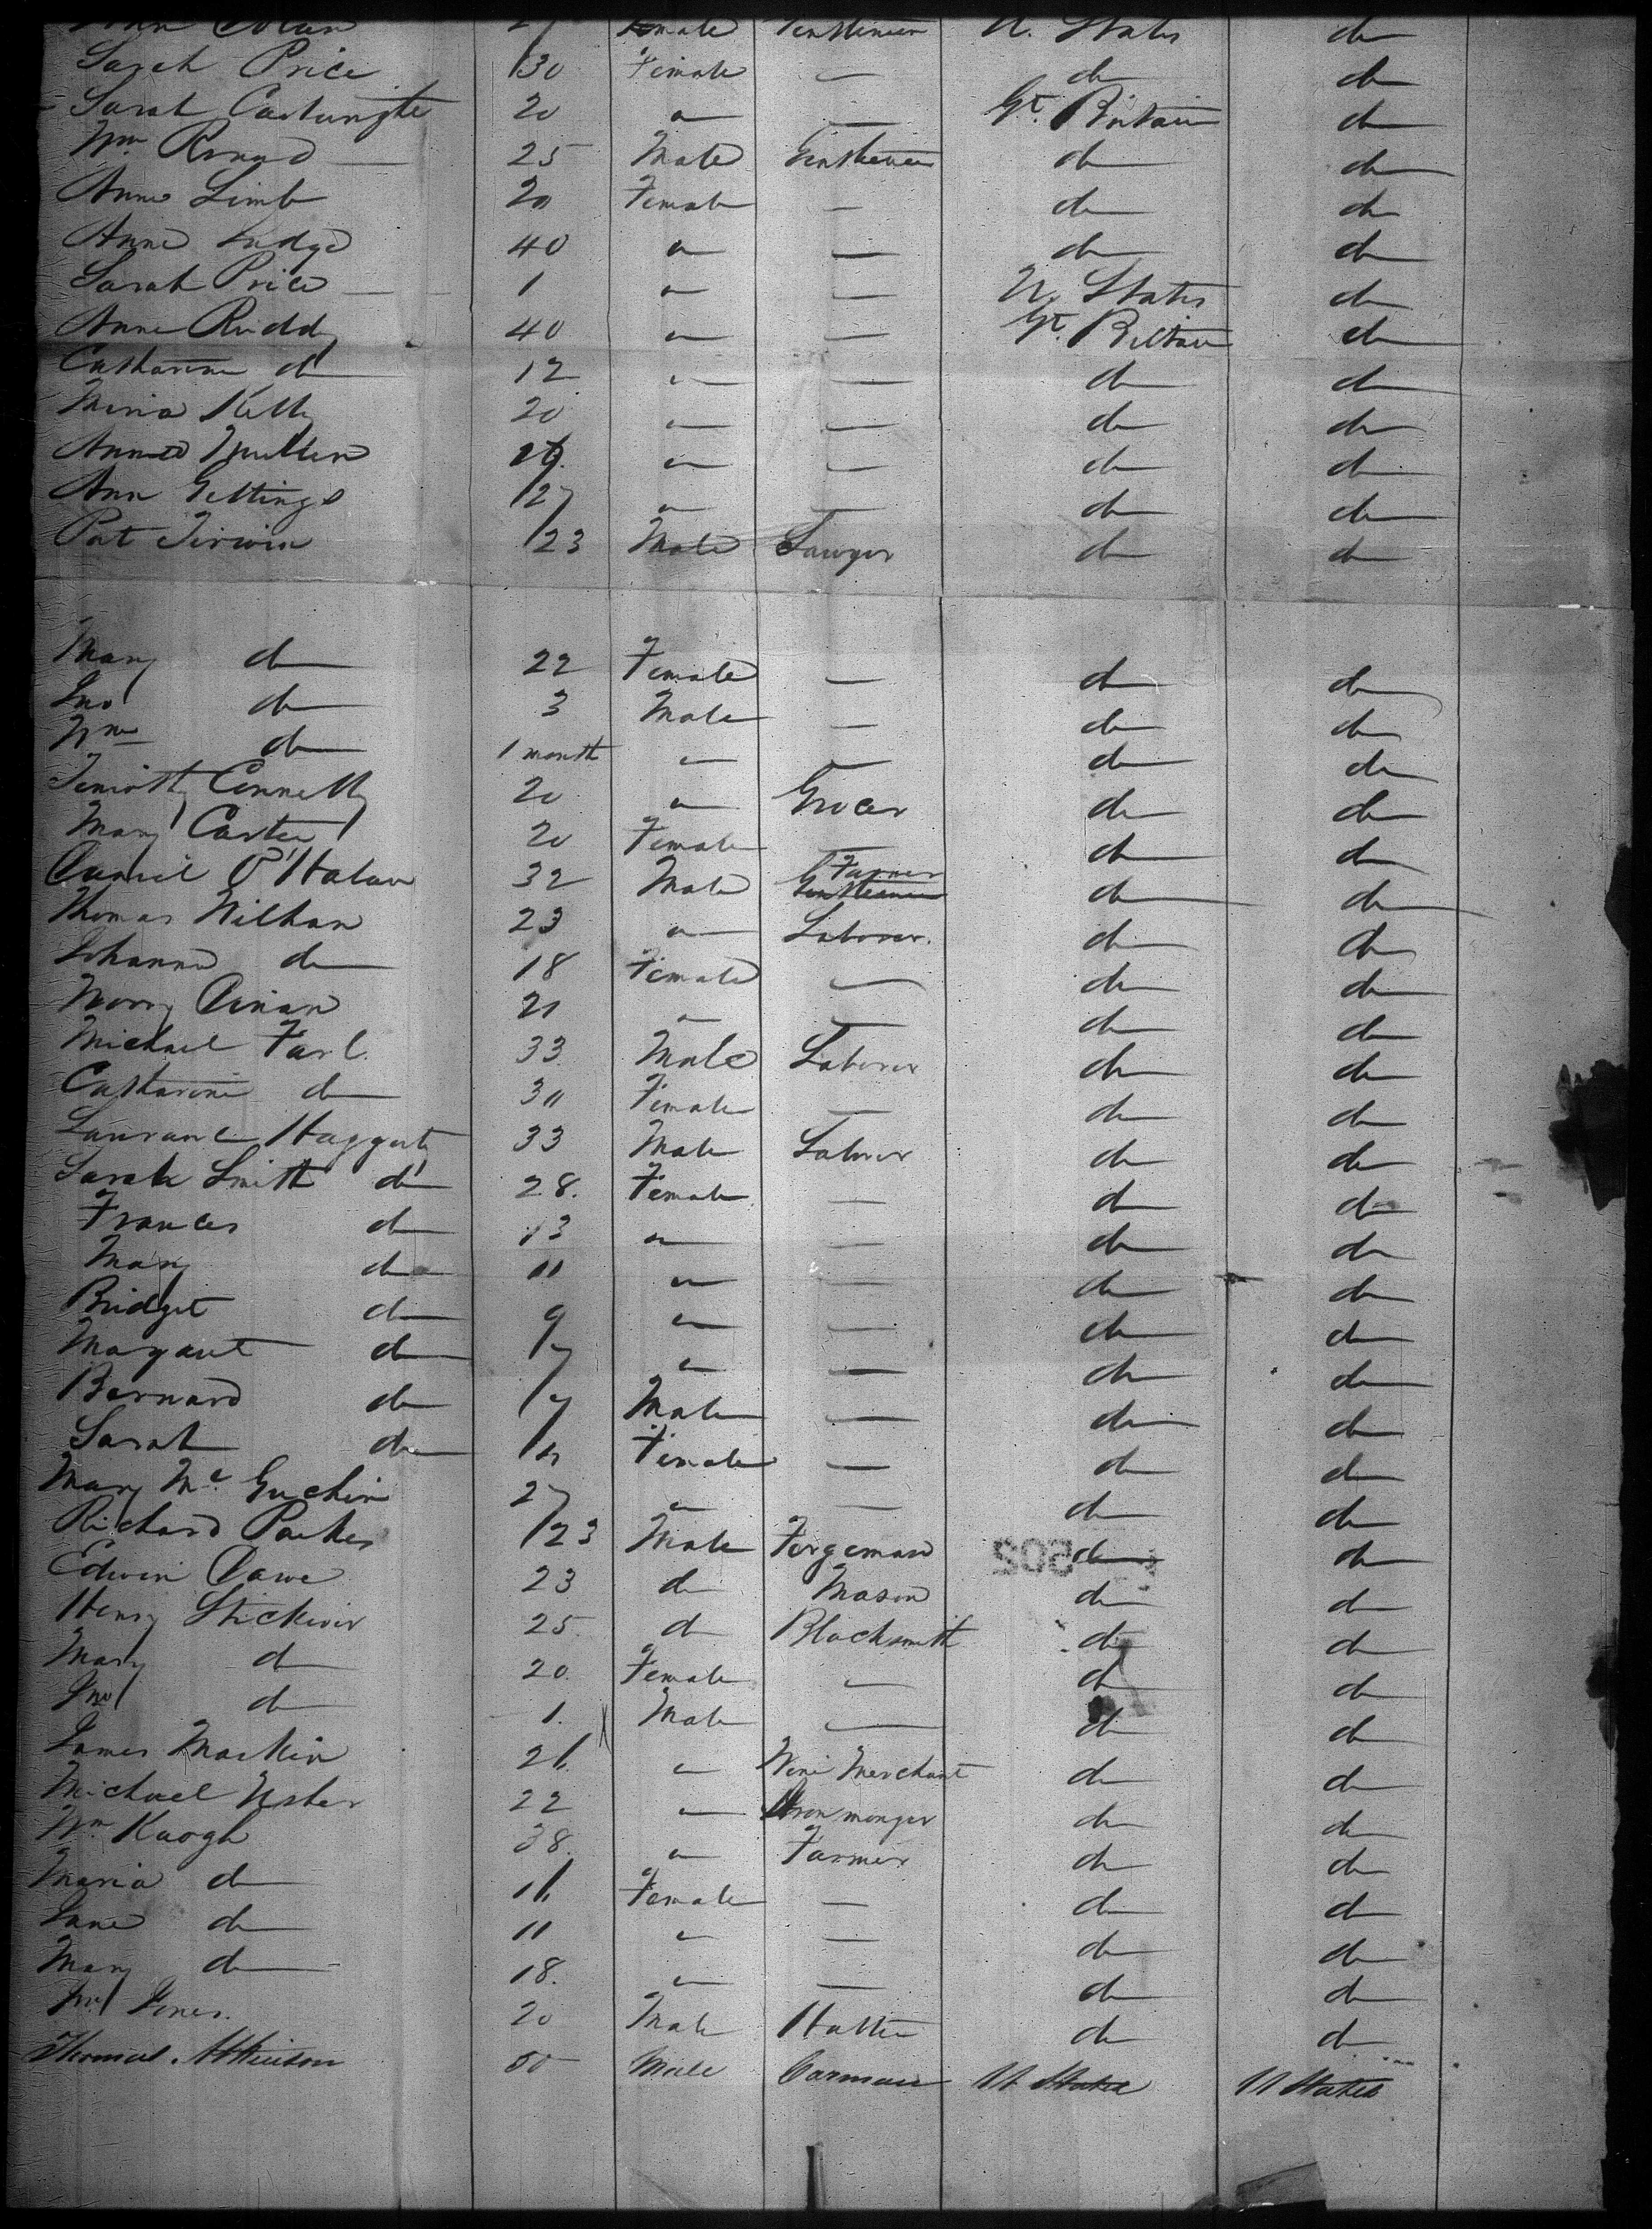 27 Female Gentleman U. States do
Sarah Price 30 Female — do do
Sarah Cartwright 20 " — Gt. Britain do
Wm. 25 Male Gentleman do do
Anne Limb 20 Female — do do
Anne Judge 40 " — do do
Sarah Price — 1 " — U. States do
Anne Ruddy 40 " — Gt. Britain do
Catharine do 12 " — do do
Maria Kelly 20 " — do do
Anne Mullen " — do do
Ann Gettings 27 " — do do
Pat Tirwin 23 Male Sawyer do do
Mary do 22 Female — do do
Jno do 3 Male — do do
Wm do 1 month " — do do
Timothy Connelly 20 " Grocer do do
Mary Carter 20 Female — do do
Daniel O'Halan 32 Male Farmer do do
Thomas Nilhan 23 " Laborer. do do
Johanna do 18 Female — do do
Norry Dinan 21 " — do do
Michael Farl. 33 Male Laborer do do
Catharine do 30 Female — do do
Laurance Haggerty 33 Male Laborer do do
Sarah Smith do 28. Female — do do
Frances do 13 " — do do
Mary do 11 " — do do
Bridget do 9 " — do do
Margaret do 7 " — do do
Bernard do Male — do do
Sarah do Female — do do
Mary Mc. Guckin 27 " — do do
Richard Parkes 23 Male Forgeman do do
Edwin Dawe 23 do Mason do do
Henry Stickiver 25. do Blacksmith do do
Mary do 20. Female — do do
Jno do 1. Male — do do
James Mackin 21. " Wine Merchant do do
Michael Usher 22 " Iron monger do do
Wm. Kaogh 38. " Farmer do do
Maria do Female — do do
Jane do 11 " — do do
Mary do 18. " — do do
Jno Jones. 20 Male Hatter do do
Thomas Atkinson 50 Male Carman U States U States